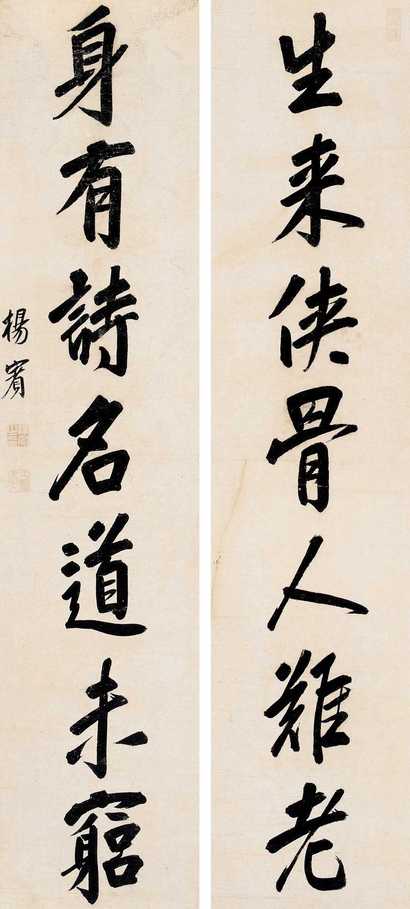 生来侠骨人難老
身有詩名道未窮
楊賓